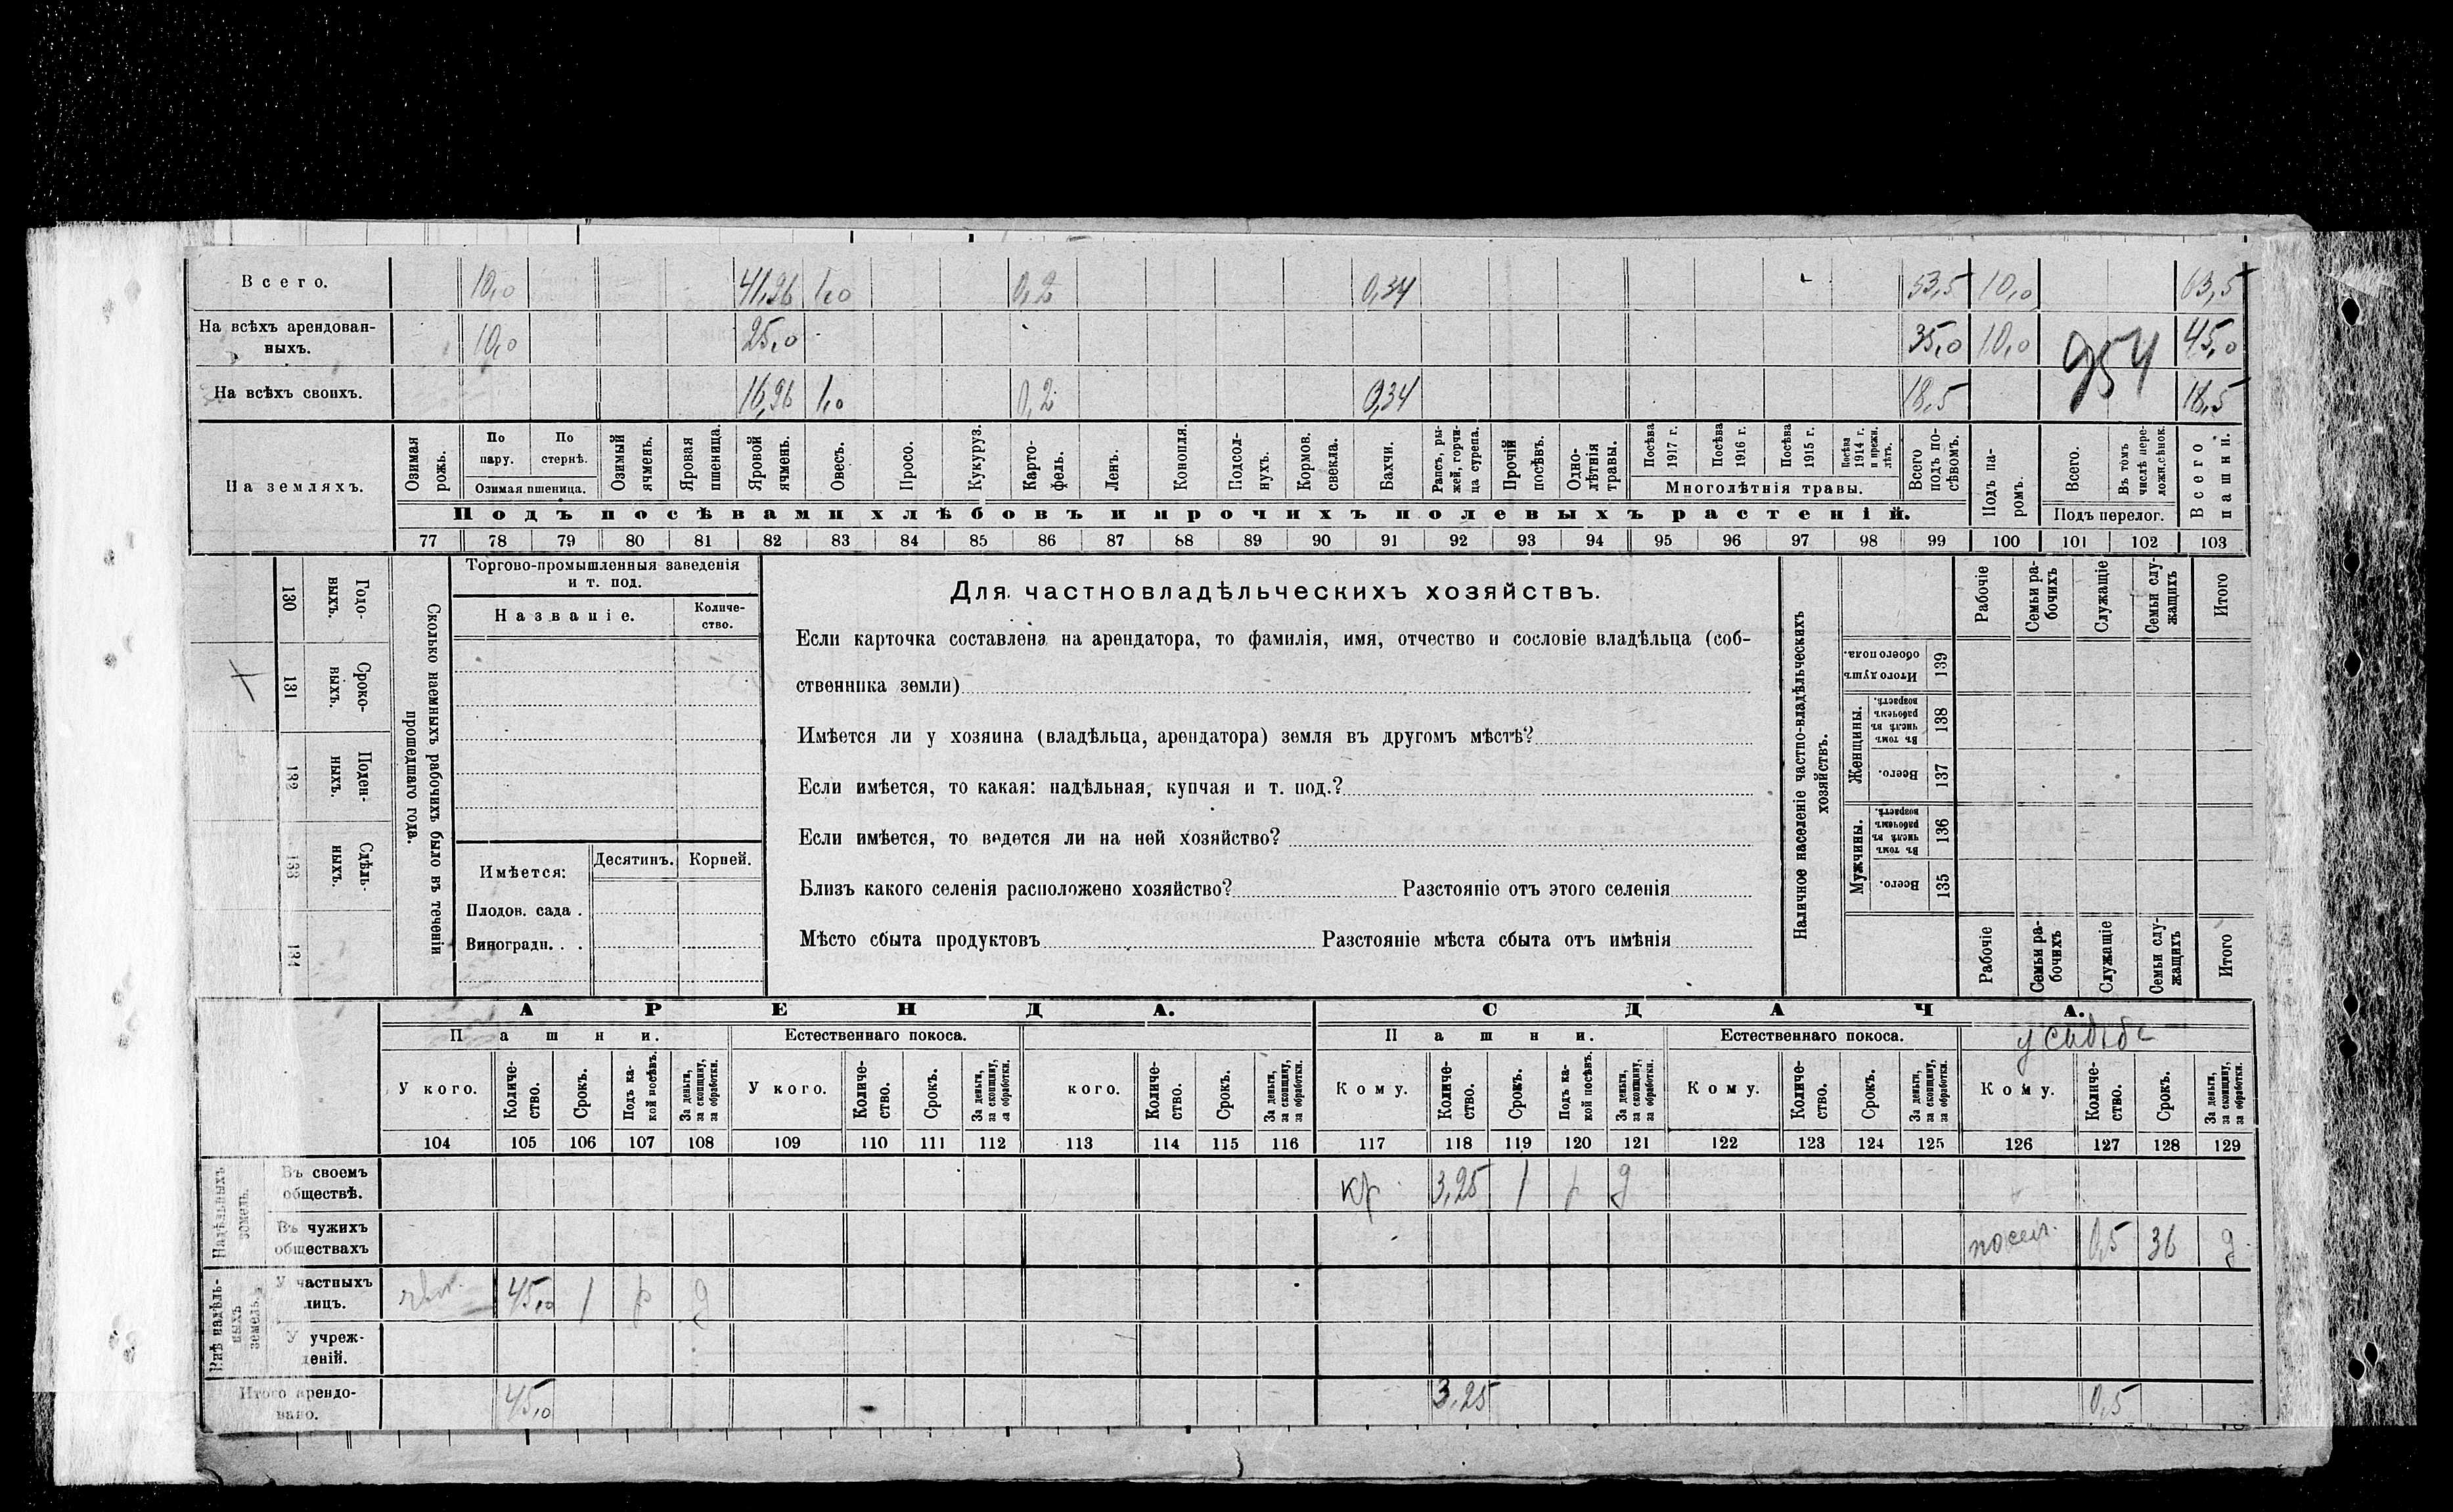 Всего. 10,0 41,96 1,0 0,2 0,34 53,5 10,0 63,5
На всѣхъ арендован-
ныхъ. 10,0 25,0 35,0 10,0 45,0
954
На всѣхъ своихъ. 16,96 1,0 0,2 0,34 18,5 18,5
На земляхъ.
Озимая рожь.
По пару.
По стернѣ.
Озимая пшеница.
Озимый ячмень.
Яровая пшеница.
Яровой ячмень.
Овесъ.
Просо.
Кукуруз.
Карто-
фель.
Ленъ.
Конопля.
Подсол-
нухъ.
Кормов.
свекла.
Бахчи.
Рапсъ, ры-
жей, горчи-
ца сурепа.
Прочій
посѣвъ.
Одно-
лѣтнія
травы.
Посѣва
1917 г.
Посѣва
1916 г.
Посѣва
1915 г.
Посѣва
1914 г.
и прежн.
лѣтъ.
Многолѣтнія травы.
Всего
подъ по-
сѣвомъ.
Подъ па-
ромъ.
Всего.
Въ томъ
числѣ пере-
лож.сѣнок.
Подъ перелог.
Всего
пашни.
Подъ посѣвами хлѣбовъ и прочихъ полевыхъ растеній.
77 78 79 80 81 82 83 84 85 86 87 88 89 90 91 92 93 94 95 96 97 98 99 100 101 102 103
130 Годо-
ныхъ.
131 Сроко-
ныхъ.
132 Поден-
ныхъ.
133 Сдѣль-
ныхъ.
134
Сколько наемныхъ рабочихъ было въ теченіи
прошедшаго года.
Торгово-промышленныя заведенія
и т. под.
Названіе.
Количе-
ство.
Имѣется:
Десятинъ.
Корней.
Плодов. сада .
Виноградн. . .
Для частновладѣльческихъ хозяйствъ.
Если карточка составлена на арендатора, то фамилія, имя, отчество и сословіе владѣльца (соб-
ственника земли)
Имѣется ли у хозяина (владѣльца, арендатора) земля въ другомъ мѣстѣ?
Если имѣется, то какая: надѣльная, купчая и т. под.?
Если имѣется, то ведется ли на ней хозяйство?
Близъ какого селенія расположено хозяйство? Разстояніе отъ этого селенія
Мѣсто сбыта продуктовъ Разстояніе мѣста сбыта отъ имѣнія
Наличное населеніе частно-владѣльческихъ
хозяйствъ.
Рабочіе
Семьи ра-
бочихъ
Служащіе
Семьи слу-
жащихъ
Итого
Итого душъ
обоего пола.
139
Женщины.
Въ томъ
числѣ въ
рабочемъ
возрастѣ.
138
Всего.
137
Мужчины.
Въ томъ
числѣ въ
рабочемъ
возрастѣ.
136
Всего.
135
Рабочіе
Семьи ра-
бочихъ
Служащіе
Семьи слу-
жащихъ
Итого
АРЕНДА. СДАЧА.
Пашни. Естественнаго покоса. Пашни. Естественнаго покоса. усадьбе
У кого.
Количе-
ство.
Срокъ.
Подъ ка-
кой посѣвъ.
За деньги,
за скопщину,
за обработки.
У кого.
Количе-
ство.
Срокъ.
За деньги,
за скопщину,
за обработки.
кого.
Количе-
ство.
Срокъ.
За деньги,
за скопщину,
за обработки.
Кому.
Количе-
ство.
Срокъ.
Подъ ка-
кой посѣвъ.
За деньги,
за скопщину,
за обработки.
Кому.
Количе-
ство.
Срокъ.
За деньги,
за скопщину,
за обработки.
Кому.
Количе-
ство.
Срокъ.
За деньги,
за скопщину,
за обработки.
104 105 106 107 108 109 110 111 112 113 114 115 116 117 118 119 120 121 122 123 124 125 126 127 128 129
Надѣльныхъ
земель.
Въ своемъ
обществѣ. кр. 3,25 1 р д
Въ чужихъ
обществахъ посел. 0,5 36 д
Внѣ надѣль-
ныхъ
земель.
У частныхъ
лицъ. 45,0 1 р д
У учреж-
деній.
Итого арендо-
вано. 45,0 3,25 0,5